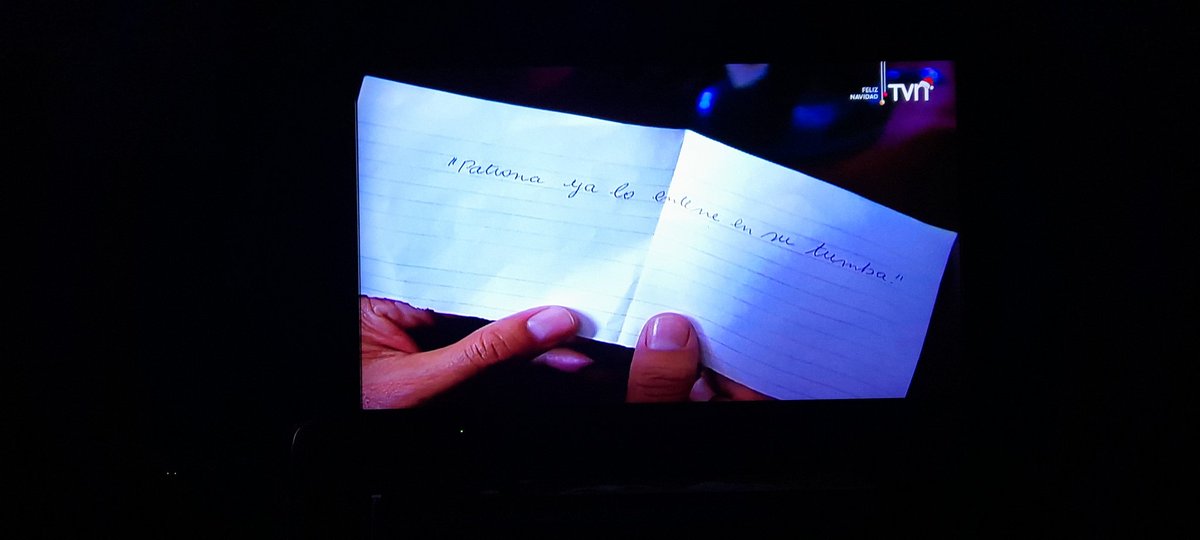 FELIZ
NAVIDAD
TVN
"Patrona ya lo enterre en su tumba."